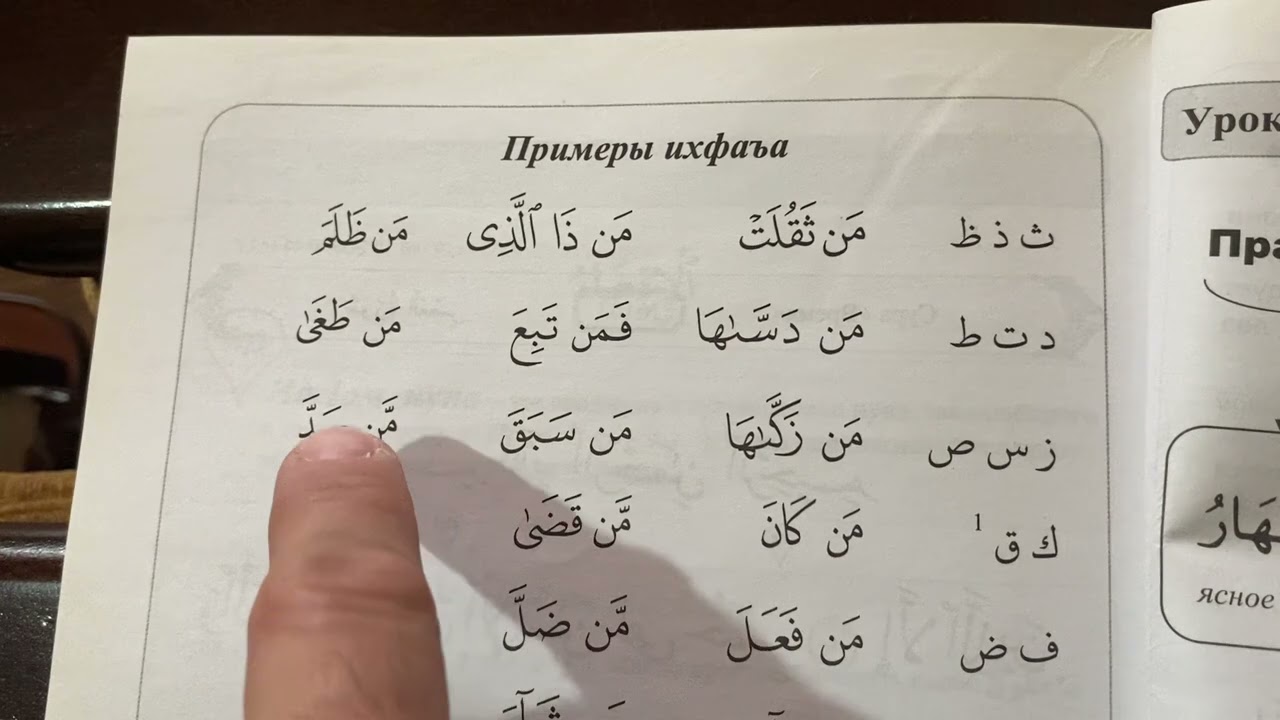 Примеры ихфаъа
ث ذ ظ مَن ثَقُلَتْ مَن ذَا ٱلَّذِى مَن ظَلَمَ
د ت ط مَن دَسَّىٰهَا فَمَن تَبِعَ مَن طَغَىٰ
ز س ص مَن زَكَّىٰهَا مَن سَبَقَ مَّن
ك ق 1 مَن كَانَ مَّن قَضَىٰ
ف ض مَن فَعَلَ مَّن ضَلَّ
Урок
ясное